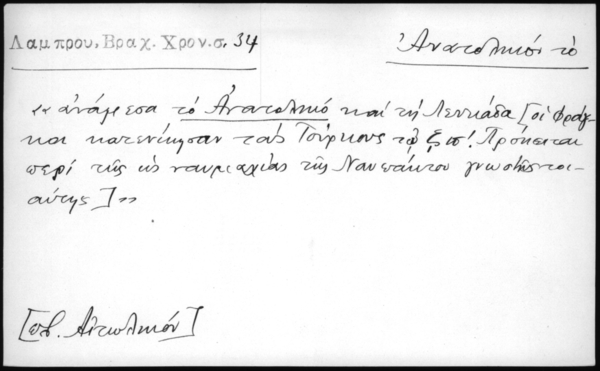 Λαμπρου, Βραχ. Χρον.σ. 34
Ἀνατολικόν τὸ
«ἀνάμεσα τὸ Ἀνατολικό καί τή Λευκάδα [οἱ Φράγ-
κοι κατενίκησαν τοὺς Τούρκους τῷ ζπ! Πρόκειται
περί τῆς ὡς ναυμαχίας τῆς Ναυπάκτου γνωστῆς τοι-
αύτης]»
[πβ. Αἰτωλικόν]